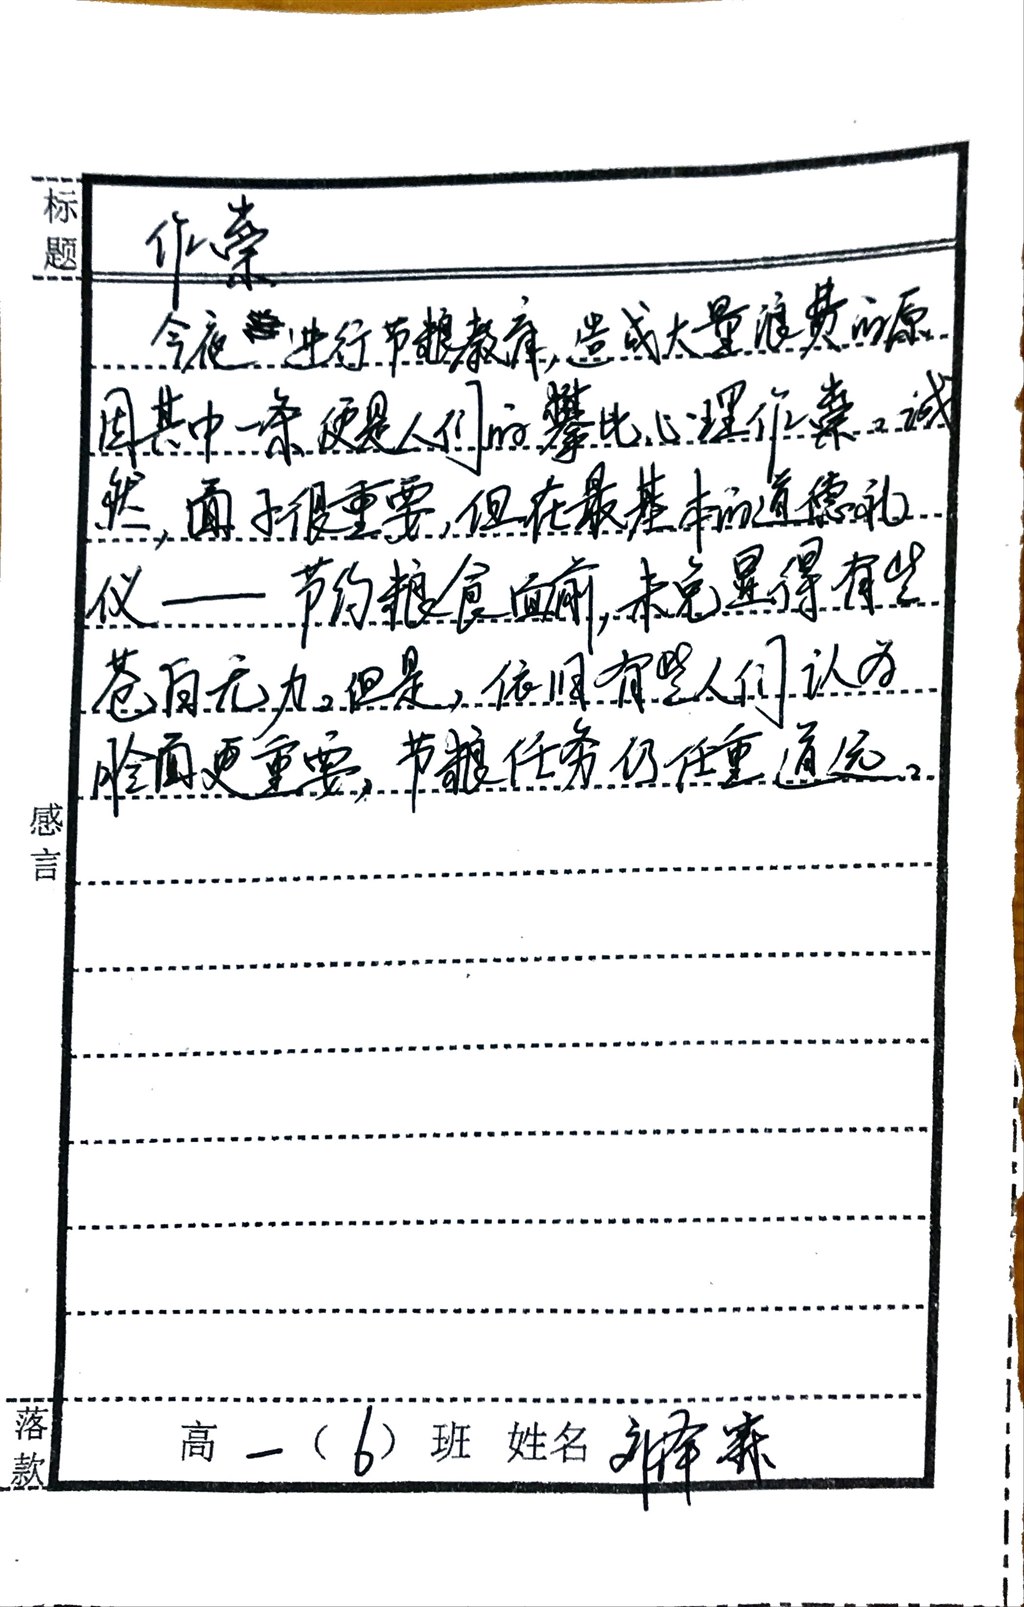 标题
作祟
今夜进行节粮教育,造成大量浪费的原
因其中一条便是人们的攀比心理作祟。诚
然,面子很重要,但在最基本的道德礼
仪——节约粮食面前,未免显得有些
苍白无力。但是,依旧有些人们认为
脸面更重要,节粮任务仍任重道远。
感言
落款
高一(6)班 姓名 刘泽霖